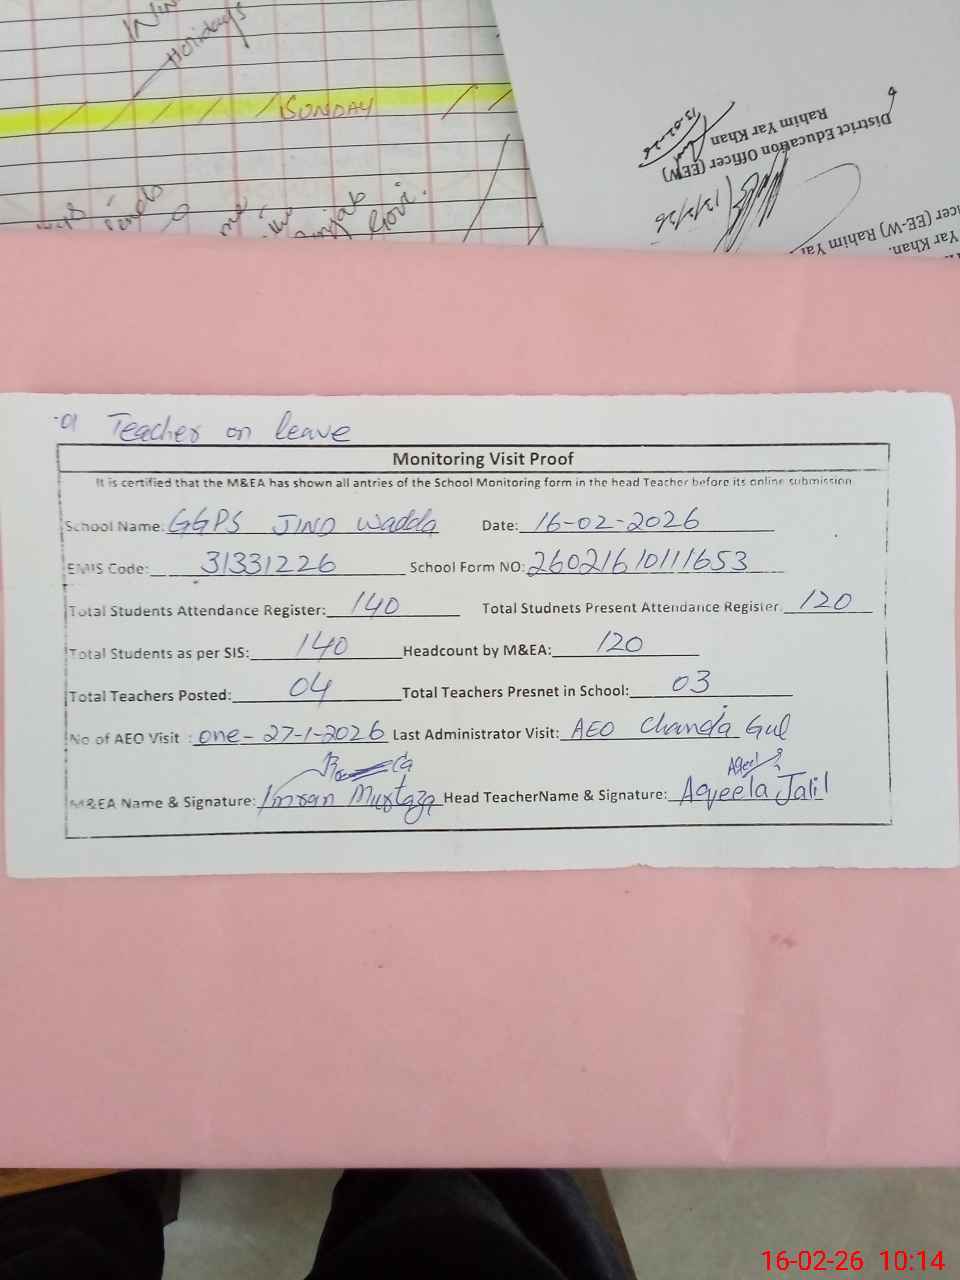 Holidays
SUNDAY
Govt.
District Education Officer (EEW)
Rahim Yar Khan
13-02-26
13/2/26
icer (EE-W) Rahim Yar
Yar Khan.
01 Teacher on leave
Monitoring Visit Proof
It is certified that the M&EA has shown all antries of the School Monitoring form in the head Teacher before its online submission
School Name: GGPS JIND Wadda Date: 16-02-2026
EMIS Code: 31331226 School Form NO: 26021610111653
Total Students Attendance Register: 140 Total Studnets Present Attendance Register. 120
Total Students as per SIS: 140 Headcount by M&EA: 120
Total Teachers Posted: 04 Total Teachers Presnet in School: 03
No of AEO Visit : one- 27-1-2026 Last Administrator Visit: AEO Chanda Gul
M&EA Name & Signature: Imran Murtaza Head TeacherName & Signature: Aqeela Jalil
16-02-26 10:14